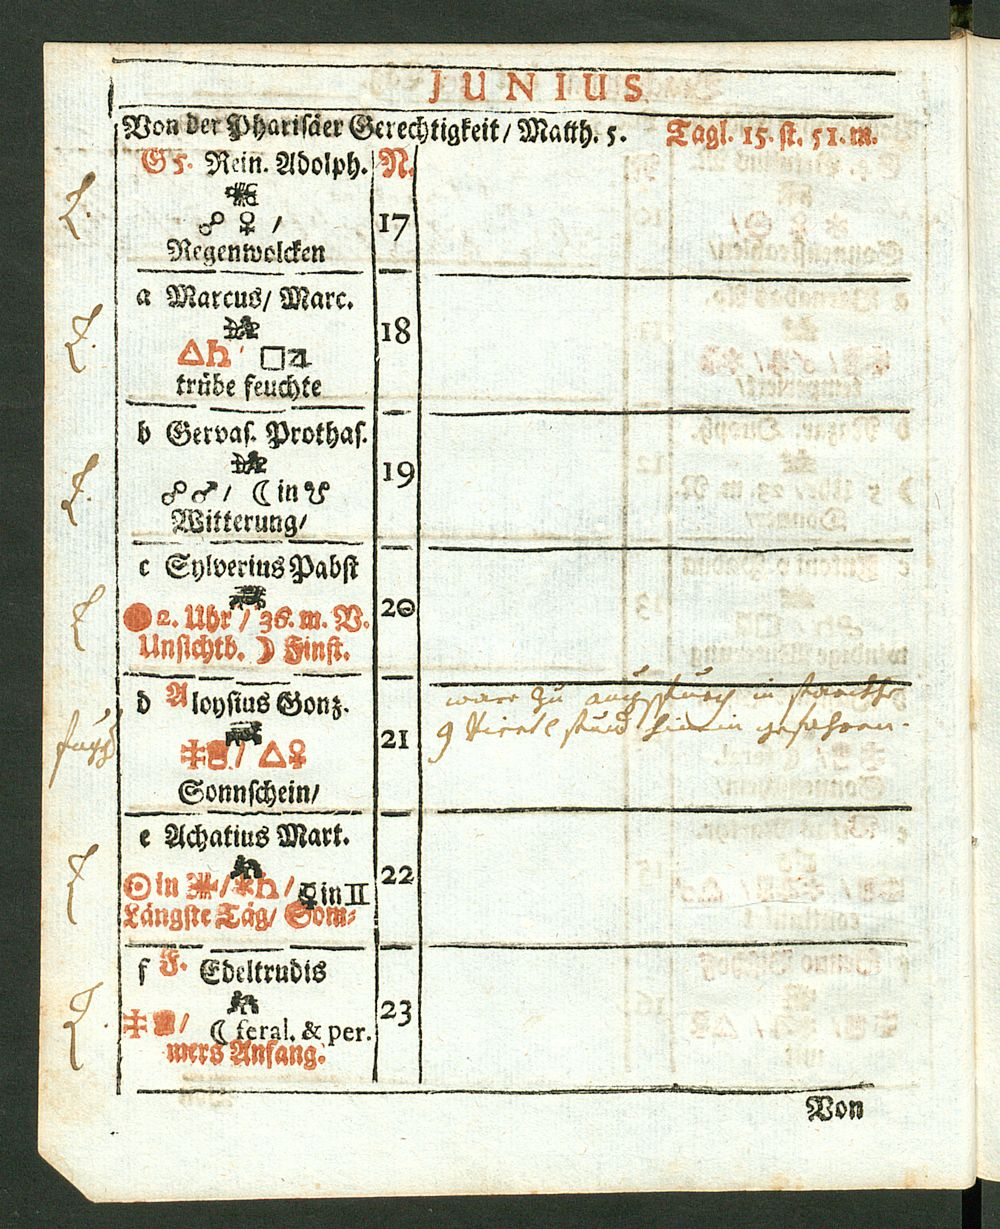 JUNIUS
Von der Pharisäer Gerechtigkeit / Matth. 5. Tagl. 15. st. 51. m.
G 5. Rein. Adolph. N.
☍ ♀ / 17
Regenwolcken
a Marcus / Marc.
△ ♄ □ ♃ 18
trübe feuchte
b Gervas. Prothas.
☍ ♂ / ☾ in ☋ 19
Witterung /
c Sylverius Pabst
2. Uhr / 36. m. V. 20
Unsichtb. ☽ Finst.
d Aloysius Gonz.
war zu in
9 Viertl stund hinein gefahren.
△ ♀ 21
Sonnschein /
e Achatius Mart.
☉ in / ✶ ♄ / ☿ in II 22
Längste Täg / Som-
f F. Edeltrudis
/ ☾ feral. & per. 23
mers Anfang.
Von